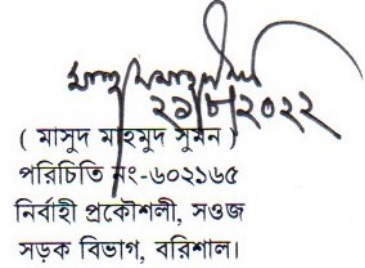 ২৯/৮/২০২২
( মাসুদ মাহমুদ সুমন )
পরিচিতি নং-৬০২১৬৫
নির্বাহী প্রকৌশলী, সওজ
সড়ক বিভাগ, বরিশাল।